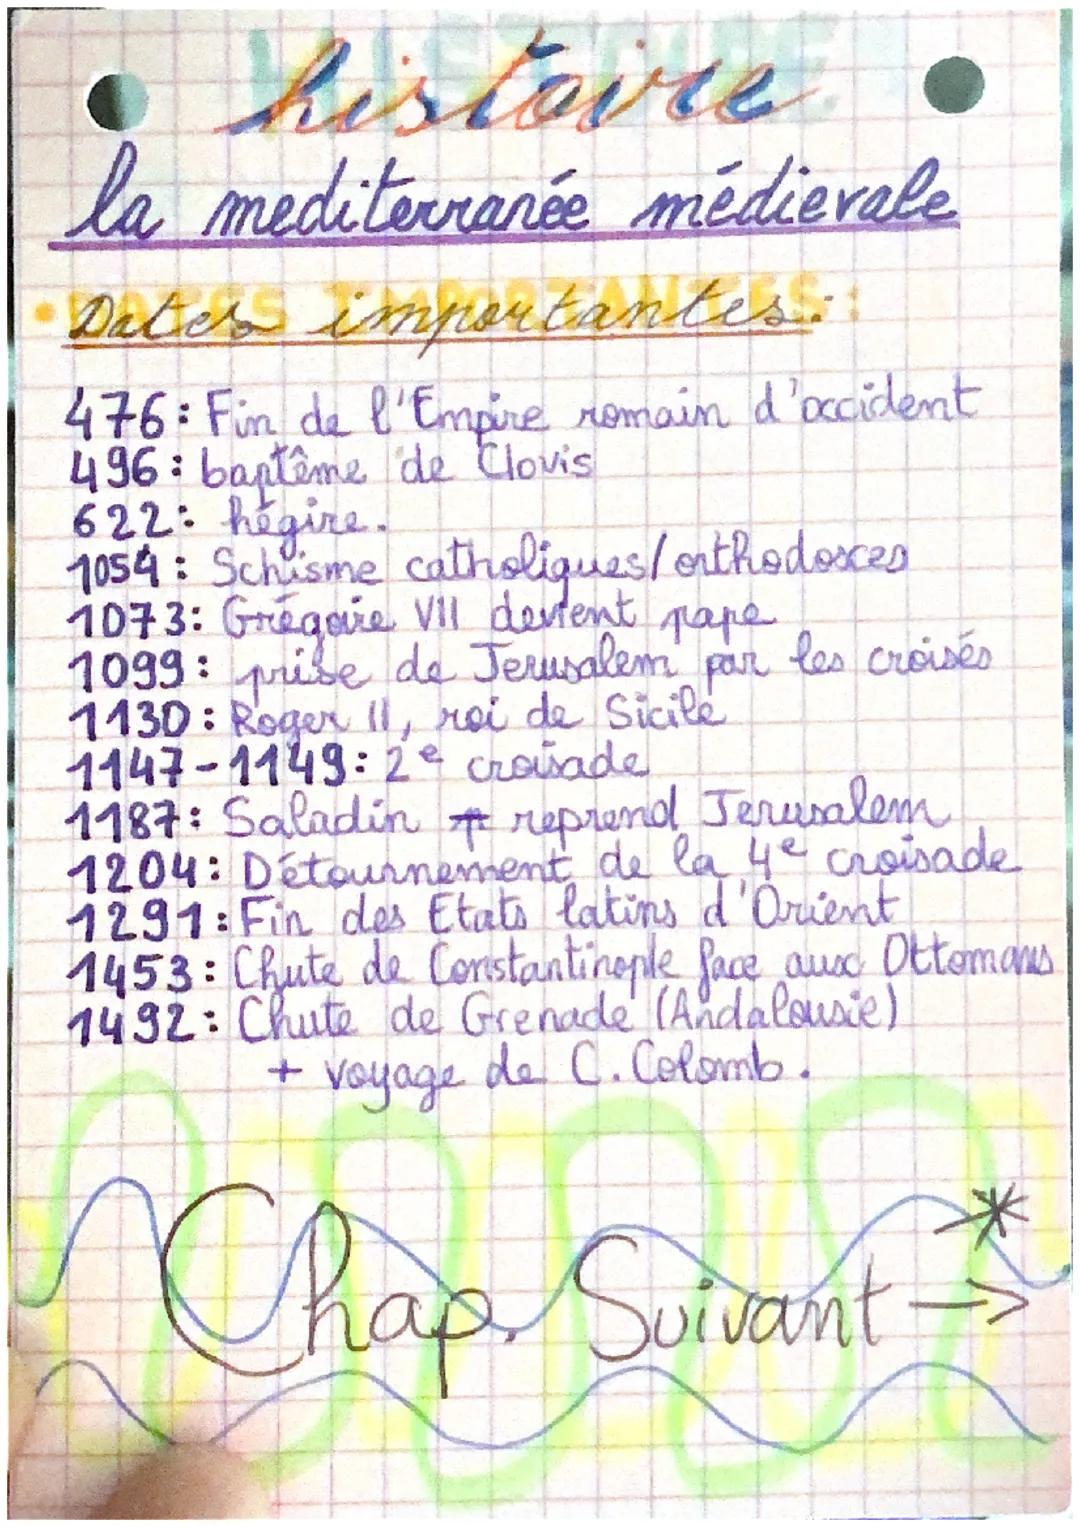 histoire
la mediterranée médievale
• Dates importantes :
476 : Fin de l'Empire romain d'occident
496 : baptême de Clovis
622 : hégire.
1054 : Schisme catholiques/orthodoxes
1073 : Grégoire VII devient pape
1099 : prise de Jerusalem par les croisés
1130 : Roger II, roi de Sicile
1147-1149 : 2e croisade
1187 : Saladin reprend Jerusalem
1204 : Détournement de la 4e croisade
1291 : Fin des Etats latins d'Orient
1453 : Chute de Constantinople face aux Ottomans
1492 : Chute de Grenade (Andalousie)
+ voyage de C. Colomb.
*
Chap. Suivant →